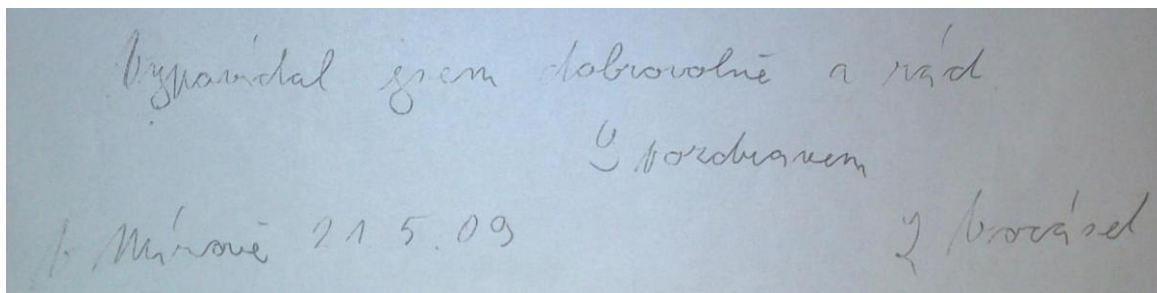 Vypovídal jsem dobrovolně a rád
S pozdravem
V Mírově 21 5.09